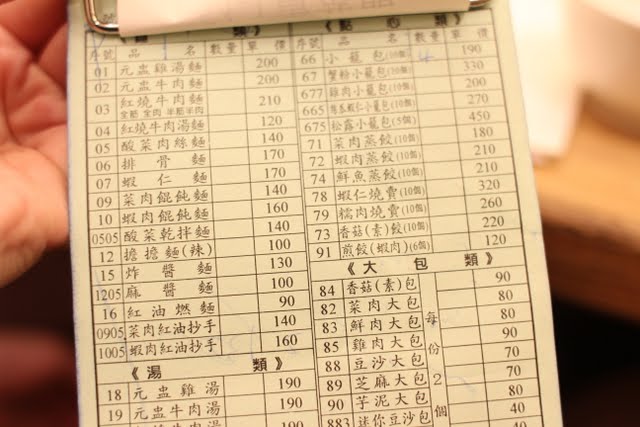 類》
序號 品名 數量 單價
01 元盅雞湯麵 200
02 元盅牛肉麵 200
03 紅燒牛肉麵 210
全筋 全肉 半筋半肉
04 紅燒牛肉湯麵 120
05 酸菜肉絲麵 140
06 排骨麵 170
07 蝦仁麵 170
09 菜肉餛飩麵 140
10 蝦肉餛飩麵 160
0505 酸菜乾拌麵 140
12 擔擔麵(辣) 100
15 炸醬麵 130
1205 麻醬麵 100
16 紅油燃麵 90
0905 菜肉紅油抄手 140
1005 蝦肉紅油抄手 160
《湯類》
18 元盅雞湯 190
19 元盅牛肉湯 190
190
《點心類》
序號 品名 數量 單價
66 小籠包(10個) 4 190
67 蟹粉小籠包(10個) 330
677 雞肉小籠包(10個) 200
665 絲瓜蝦仁小籠包(10個) 270
675 松露小籠包(5個) 450
71 菜肉蒸餃(10個) 180
72 蝦肉蒸餃(10個) 210
74 鮮魚蒸餃(10個) 210
78 蝦仁燒賣(10個) 320
79 糯肉燒賣(10個) 260
73 香菇(素)餃(10個) 220
91 煎餃(蝦肉)(6個) 120
《大包類》
每份2個
84 香菇(素)包 90
82 菜肉大包 80
83 鮮肉大包 80
85 雞肉大包 90
88 豆沙大包 70
89 芝麻大包 70
90 芋泥大包 80
883 迷你豆沙包 40